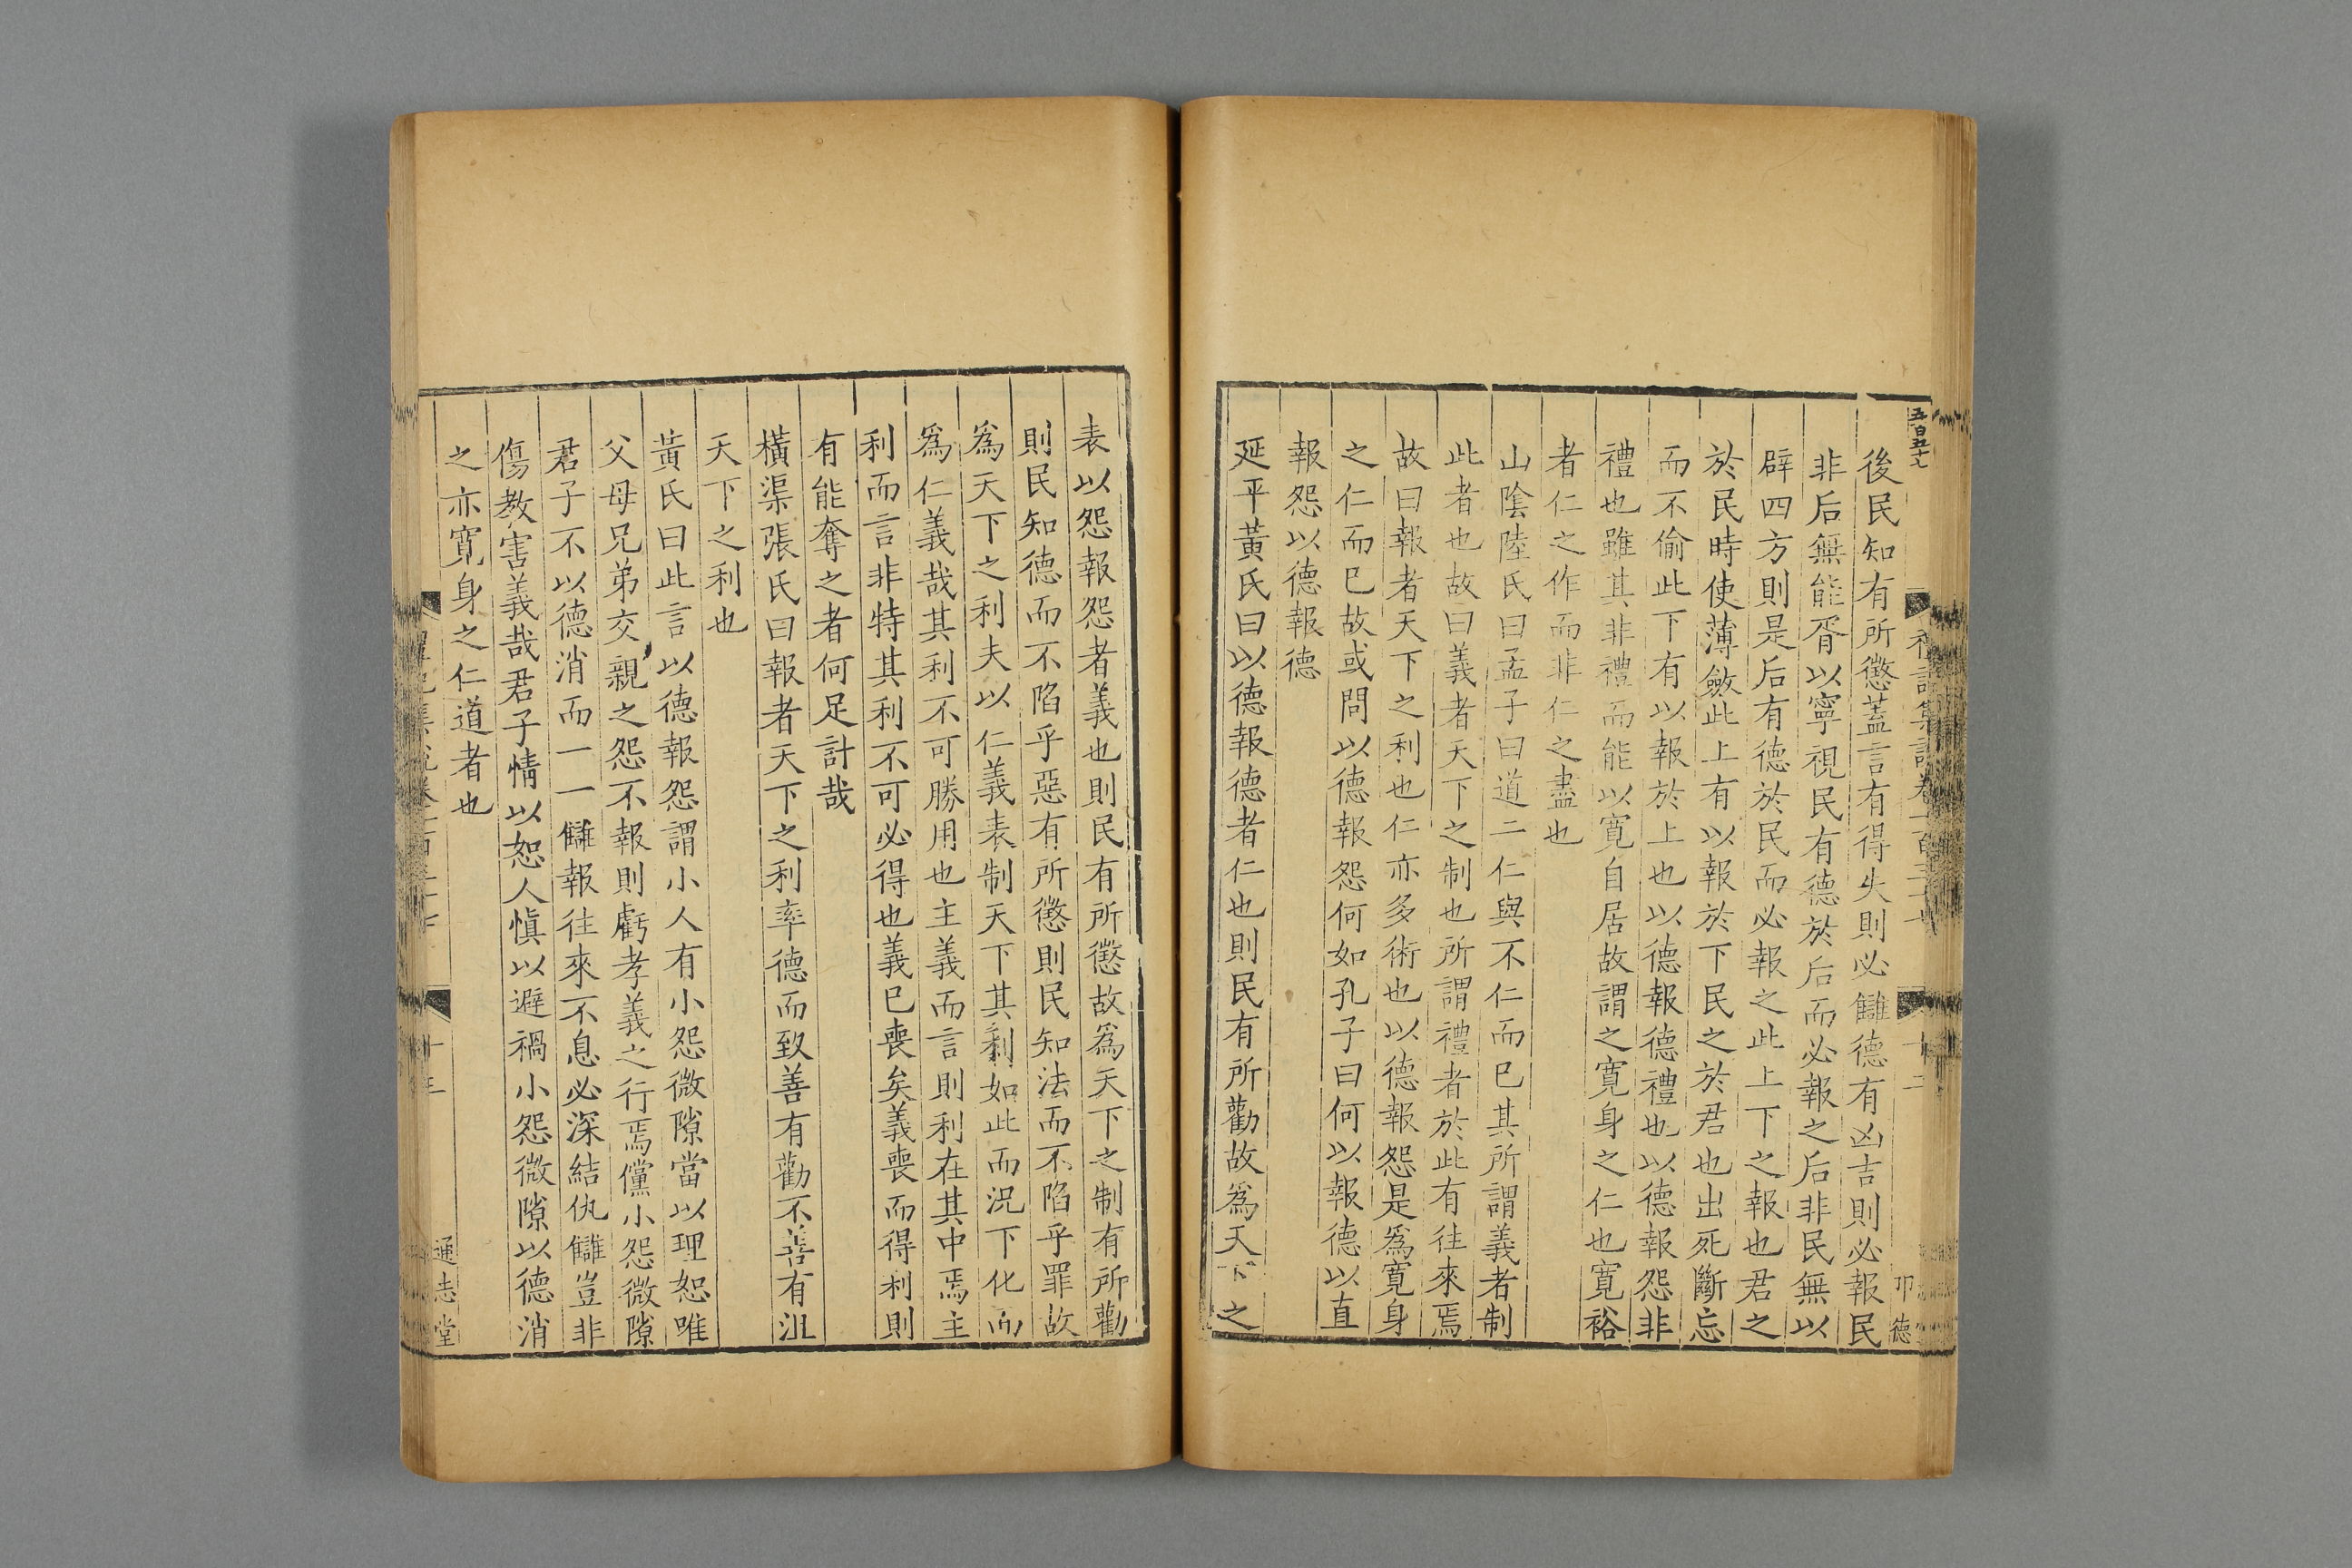 後民知有所懲蓋言有得失則必讎德有凶吉則必報民
非后無能胥以寧視民有德於后而必報之后非民無以
辟四方則是后有德於民而必報之此上下之報也君之
於民時使薄斂此上有以報於下民之於君也出死斷忘
而不偷此下有以報於上也以德報德禮也以德報怨非
禮也雖其非禮而能以寬自居故謂之寬身之仁也寬裕
者仁之作而非仁之盡也
山陰陸氏曰孟子曰道二仁與不仁而已其所謂義者制
此者也故曰義者天下之制也所謂禮者於此有往來焉
故曰報者天下之利也仁亦多術也以德報怨是爲寬身
之仁而已故或問以德報怨何如孔子曰何以報德以直
報怨以德報德
延平黃氏曰以德報德者仁也則民有所勸故爲天下之
表以怨報怨者義也則民有所懲故爲天下之制有所勸
則民知德而不陷乎惡有所懲則民知法而不陷乎罪故
爲天下之利夫以仁義表制天下其利如此而況下化而
爲仁義哉其利不可勝用也主義而言則利在其中焉主
利而言非特其利不可必得也義已喪矣義喪而得利則
有能奪之者何足計哉
橫渠張氏曰報者天下之利率德而致善有勸不善有沮
天下之利也
黃氏曰此言以德報怨謂小人有小怨微隙當以理恕唯
父母兄弟交親之怨不報則虧孝義之行焉儻小怨微隙
君子不以德消而一一讎報往來不息必深結仇讎豈非
傷教害義哉君子情以恕人慎以避禍小怨微隙以德消
之亦寬身之仁道者也
通志堂